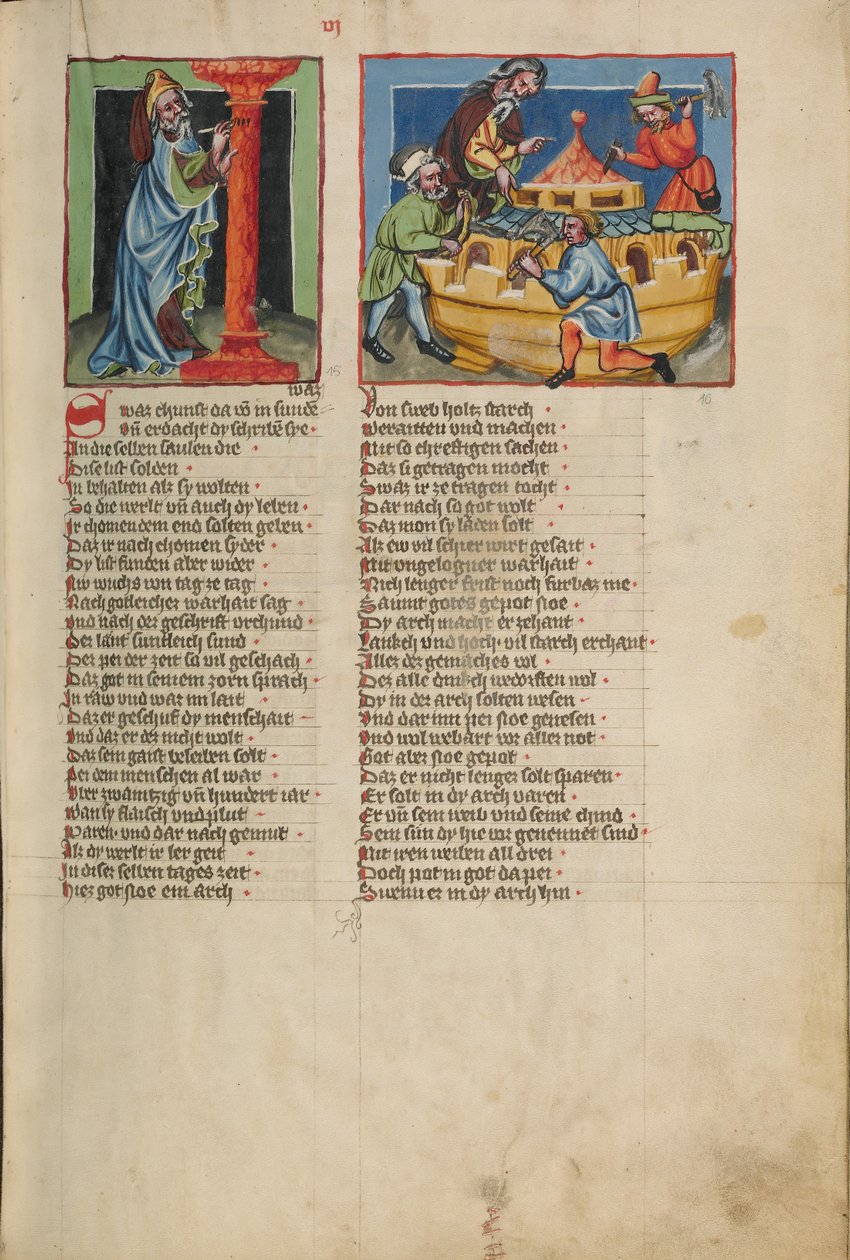 vj
15
16
waz
Swaz chunst da vō in funde
Vn̄ erdacht dy schribē sye
An die selben saulen die
Dise list solden
In behalten alz sy wolten
So die werlt vn̄ auch dy leben
Ir chomen dem end solten geben
Daz ir nach chomen syder
Dy list funden aber wider
Nw wuchs von tag ze tag
Nach gotleicher warhait sag
Vnd nach der geschrift vrchund
Der lant suntleich sund
Der pei der zeit so vil geschach
Daz got in seinem zorn sprach
In raw vnd waz im lait
Daz er geschuf dy menschait
Vnd daz er des nicht wolt
Daz sein gaist beleiben solt
Pei dem menschen al war
Vber zwaintzig vn̄ hundert iar
Wan sy flaisch vnd plut
Waren vnd dar nach gemut
Alz dy werlt ir ler geit
In diser selben tages zeit
Hiez got noe ein arch
Von sweb holtz starch
Beraitten vnd machen
Mit so chreftigen sachen
Daz si getragen mocht
Swaz ir ze tragen tocht
Dar nach so got wolt
Daz mon sy laden solt
Alz ew vil schier wirt gesait
Mit vngelogner warhait
Nich lenger frist noch furbaz me
Saumt gotes gepot noe
Dy arch macht er zehant
Lankch vnd hoch vil starch erchant
Aller der gemaches vol
Des alle durfften wol
Dy in der arch solten wesen
Vnd dar inn pei noe genesen
Vnd wol bewart vor aller not
Got aber noe gepot
Daz er nicht lenger solt sparen
Er solt in dy arch varen
Er vn̄ sein weib vnd seine chind
Sein sün dy hie vor genennēt sind
Mit iren weiben all drei
Doch pat in got da pei
Swenn er in dy arch hin